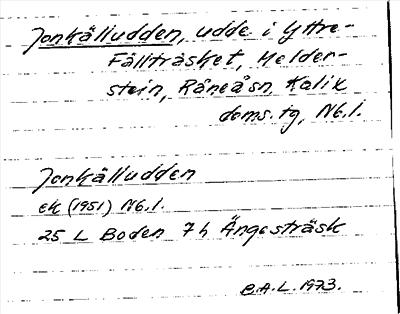 Jonkälludden, udde i Yttre-
Fällträsket, Melder-
stein, Råneåsn, Kalix
doms.tg, Nb.l.
Jonkälludden
ek (1951) Nb.l.
25 L Boden 7h Ängesträsk
B.A.L. 1973.